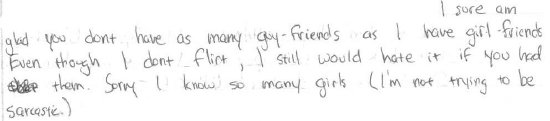 I sure am
glad you dont have as many guy-friends as I have girl-friends
Even though I dont flirt, I still would hate it if you had
them. Sorry I know so many girls (I'm not trying to be
sarcastic.)